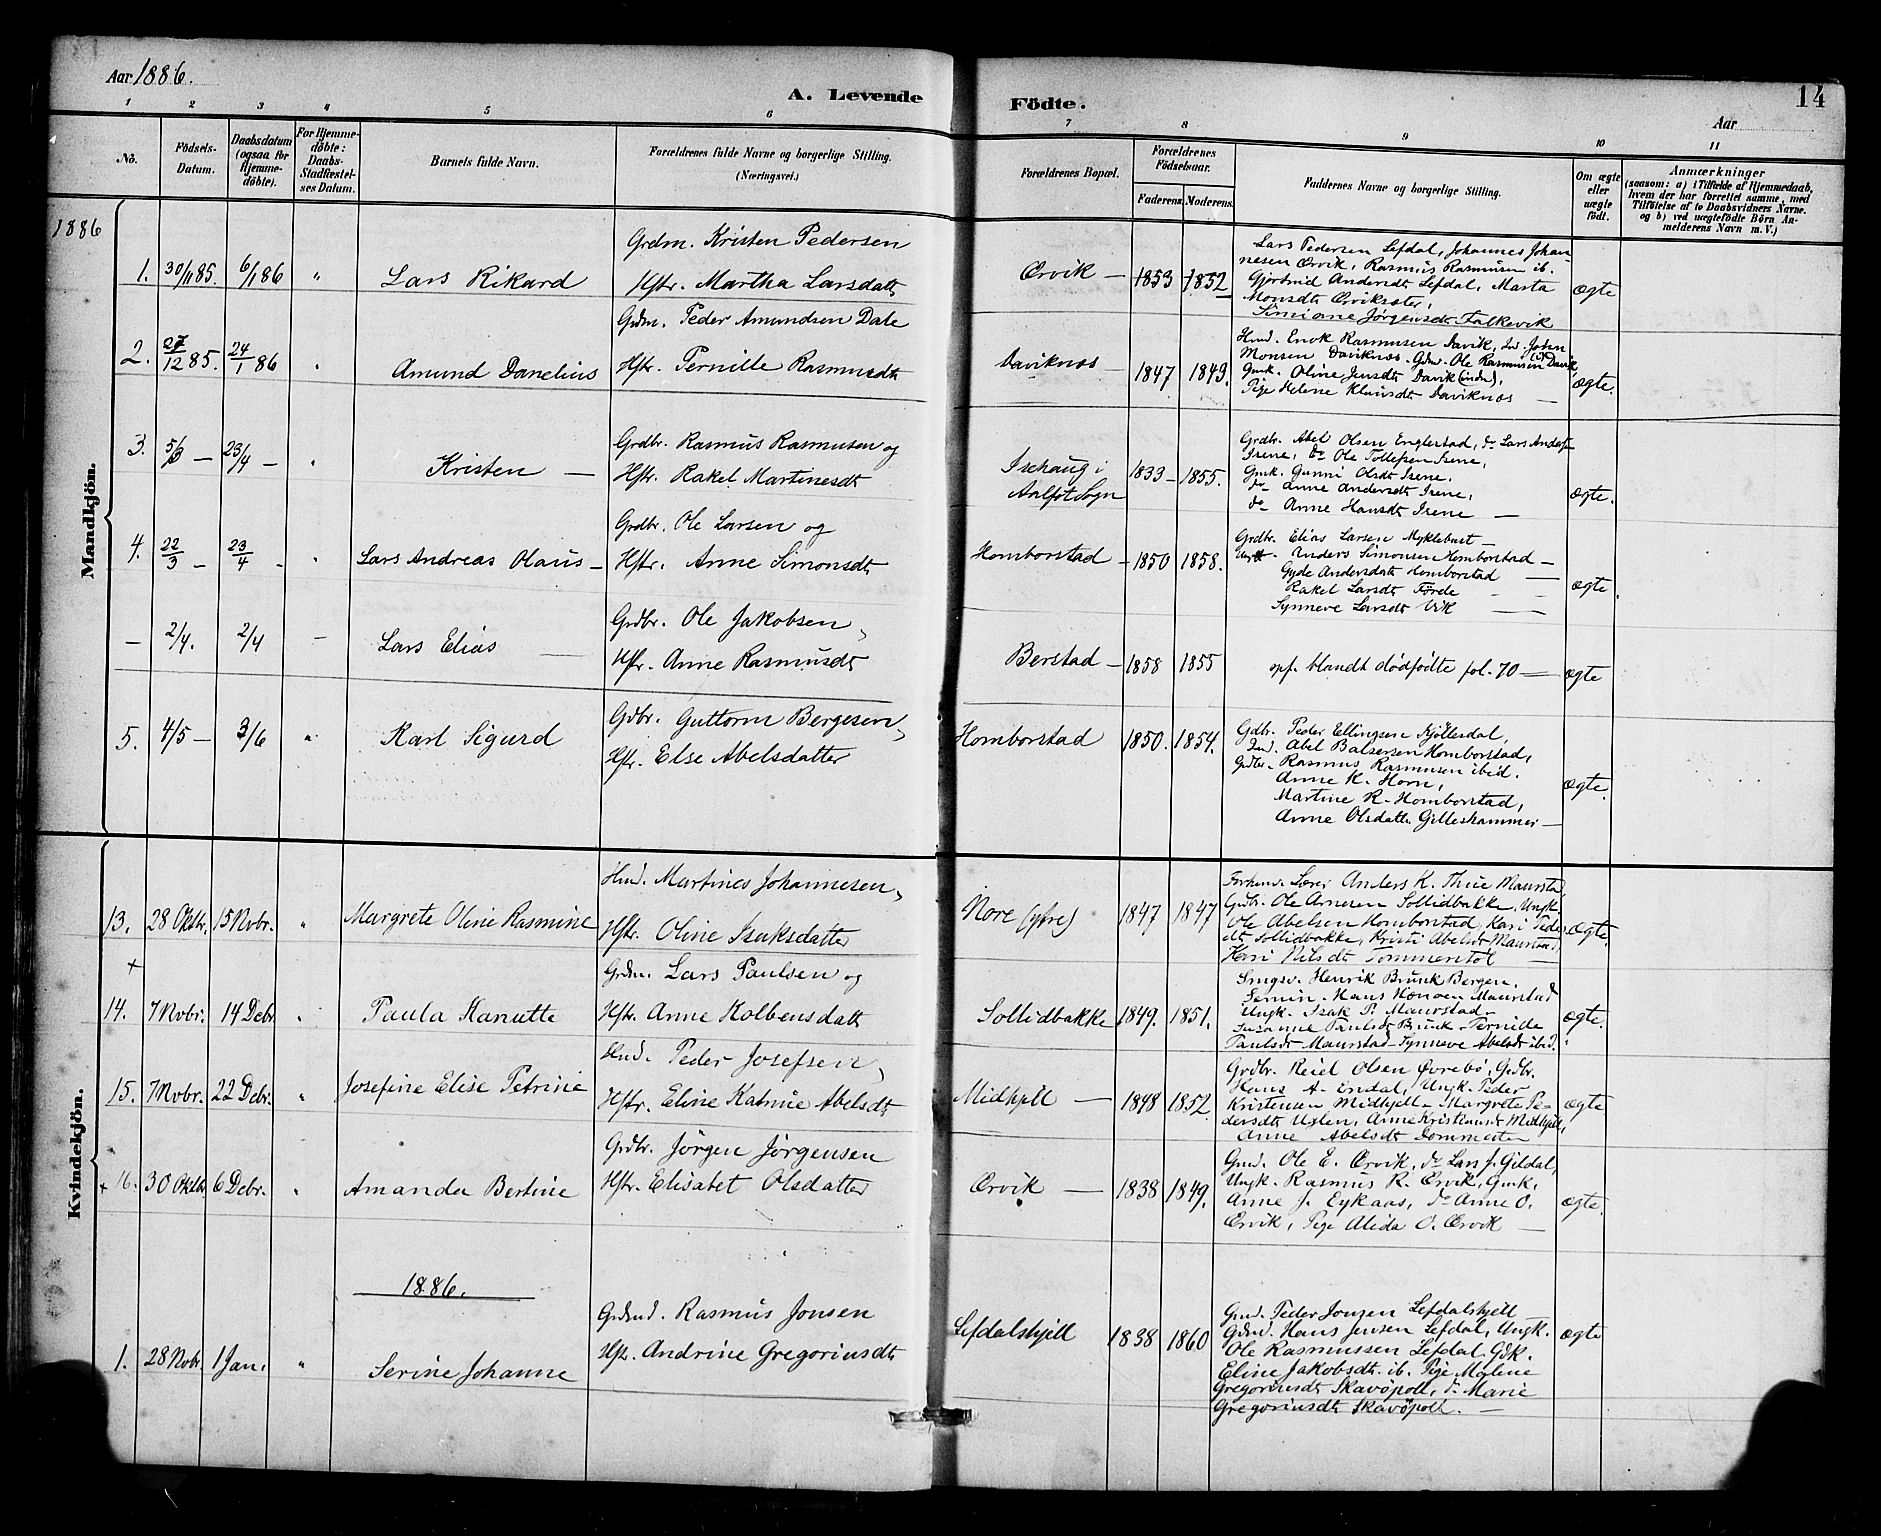 Aar 1886.
A. Levende
Födte.
14
Aar
1 2 3 4 5 6 7 8 9 10 11
No.
Födsels-
Datum.
Daabsdatum
(ogsaa for
Hjemme-
döbte).
For Hjemme-
döbte:
Daabs-
Stadfæstel-
ses Datum.
Barnets fulde Navn.
Forældrenes fulde Navne og borgerlige Stilling.
(Næringsvei.)
Forældrenes Bopæl.
Forældrenes
Födselsaar.
Faderens. Moderens.
Faddernes Navne og borgerlige Stilling.
Om ægte
eller
uægte
födt.
Anmærkninger
(saasom: a) i Tilfælde af Hjemmedaab,
hvem der har forrettet samme, med
Tilföielse af to Daabsvidners Navne.
og b) ved uægtefödte Börn An-
melderens Navn m. V.)
Mandkjön.
1886
1. 30/11 85. 6/1 86 " Lars Rikard
Grdm. Kristen Pedersen
Hstr. Martha Larsdatt
Ørvik — 1853 1852
Lars Pedersen Lefdal, Johannes Johan
nesen Ørvik, Rasmus Rasmusen ib.
Gjertrud Andersdt Lefdal, Marta
Monsdt Ørviksæter,
Simiane Jørgensdt Falkevik
ægte
2. 27/12 85. 24/1 86 " Amund Danelius
Grdm. Peder Amundsen Dale
Hstr. Pernille Rasmusdt
Daviknæs — 1847 1843.
Hmd. Enok Rasmusen Davik, Ind. Johan
Monsen Daviknæs. Gdm. Ole Rasmusen Davik,
Gmk. Oline Jensdt Davik (indr),
Pige Helene Klausdt Daviknæs —
ægte.
3. 5/3 — 23/4 — " Kristen —
Grdbr. Rasmus Rasmusen og
Hstr. Rakel Martinesdt
Isehaug i
Aalfot Sogn
1833 — 1855.
Grdbr. Abel Olsen Englestad, do Lars Anders
Isene, do Ole Tollefsen Isene,
Gmk. Gunni Olsdt Isene,
do Anne Andersdt Isene,
do Anne Hansdt Isene —
ægte.
4. 22/3 — 23/4 — " Lars Andreas Olaus —
Grdbr. Ole Larsen og
Hstr. Anne Simonsdt
Homborstad — 1850 1858.
Grdbr. Elias Larsen Myklebust —
Ungk. Anders Simonsen Homborstad —
Gyde Andersdatt Homborstad —
Rakel Larsdt Förde —
Synneve Larsdt Vik —
ægte.
— 2/4. 2/4 — Lars Elias —
Grdbr. Ole Jakobsen,
Hstr. Anne Rasmusdt
Berstad — 1858 1855
opf. blandt dödfödte fol. 70 — ægte
5. 4/5 — 3/6 " Karl Sigurd
Gdbr. Guttorm Bergesen,
Hstr. Else Abelsdatter
Homborstad 1850. 1854.
Gdbr. Peder Ellingsen Kjöllesdal,
Ind. Abel Balsersen Homborstad,
Grdbr. Rasmus Rasmusen ibid.
Anne K. Horn,
Martine R. Homborstad,
Anne Olsdatt Gilleshammer —
ægte.
Kvindekjön.
13. 28 Oktbr. 15 Novbr. " Margrete Oline Rasmine
Hmd. Martines Johannesen,
Hstr. Oline Isaksdatter
Nore (yfre) 1847 1847
Forhenv. Lærer Anders K. Thue Maurstad
Gdbr. Ole Arnesen Sollidbakke, Ungk.
Ole Abelsen Homborstad, Kari Peder-
dt Sollidbakke, Kristi Abelsdt Maurstad,
Kari Nilsdt Tommerstöl —
ægte.
+
14. 7 Novbr. 14 Debr. " Paula Hanutte
Grdm. Lars Paulsen og
Hstr. Anne Kolbensdatt
Sollidbakke 1849. 1851.
Smgsv. Henrik Brunk Bergen.
Semin. Hans Maurstad
Ungk. Isak P. Maurstad
Susanne Paulsdt Brunk — Pernille
Paulsdt Maurstad — Synneve Abelsdt ibid.
ægte.
15. 7 Novbr. 22 Debr. " Josefine Elise Petrine
Hmd. Peder Josefsen,
Hstr. Eline Katrine Abelsdt
Midhjell — 1848 1852.
Grdbr. Reiel Olsen Øvrebö, Gdbr.
Hans A. Endal, Ungk. Peder
Kristensen Midhjell — Margrete Pe-
dersdt Uglen, Anne Kristiansdt Midhjell,
Anne Abelsdt Dommersten
ægte
+ 16. 30 Oktbr 6 Debr. " Amanda Bertine
Grdbr. Jörgen Jörgensen
Hstr. Elisabet Olsdatter
Ørvik — 1838 1849.
Gmd. Ole E. Ørvik, do Lars J. Gildal,
Ungk. Rasmus R. Ørvik, Gmk.
Anne J. Eykaas, do Anne O.
Ørvik, Pige Alida O. Ørvik —
ægte.
1886.
1. 28 Novbr. 1 Jan. " Serine Johanne
Grdmd. Rasmus Jonsen
Hstr. Andrine Gregoriusdt
Lefdalshjell 1838 1860
Gmd. Peder Jonsen Lefdalshjell
Gdmd. Hans Jensen Lefdal, Ungk.
Ole Rasmussen Lefdal. Gdk.
Eline Jakobsdt. ib. Pige Malene
Gregoriusdt Skavöpoll, do Marie
Gregoriusdt Skavöpoll. —
ægte